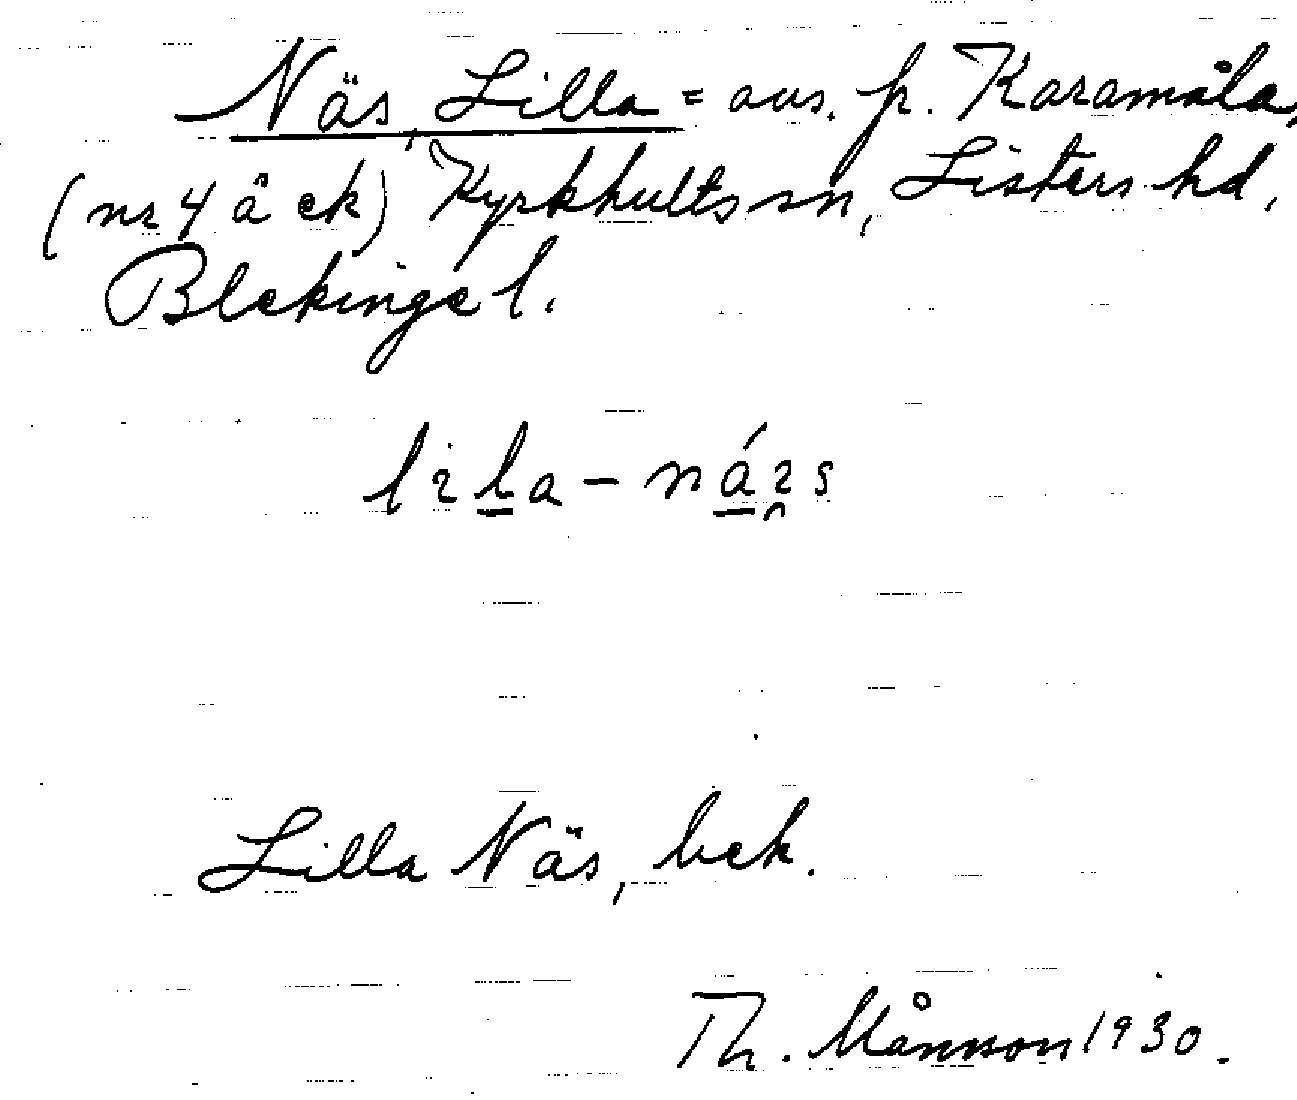 Näs, Lilla = avs. fr. Karamåla,
(nr 4 å ek) Kyrkhults sn, Listers hd,
Blekinge l.
Lilla Näs, bek.
Th. Månsson 1930.